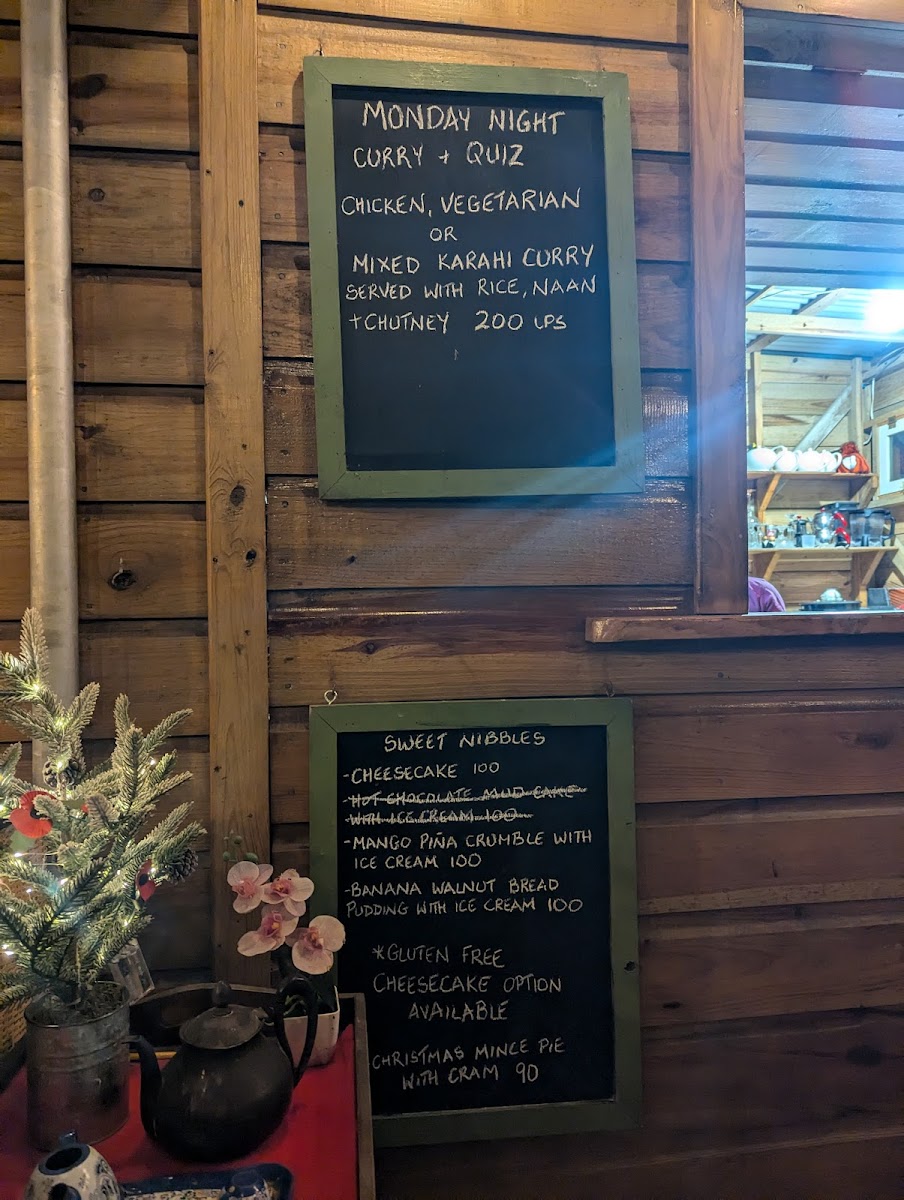 MONDAY NIGHT
CURRY + QUIZ
CHICKEN, VEGETARIAN
OR
MIXED KARAHI CURRY
SERVED WITH RICE, NAAN
+ CHUTNEY 200 LPS
SWEET NIBBLES
-CHEESECAKE 100
-HOT CHOCOLATE MUD CAKE
WITH ICE CREAM 100
-MANGO PIÑA CRUMBLE WITH
ICE CREAM 100
-BANANA WALNUT BREAD
PUDDING WITH ICE CREAM 100
*GLUTEN FREE
CHEESECAKE OPTION
AVAILABLE
CHRISTMAS MINCE PIE
WITH CRAM 90